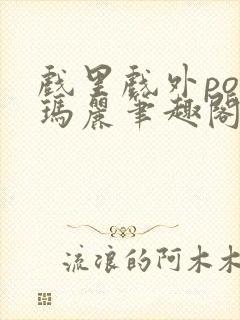 戲里戲外po
瑪麗筆趣閣
流浪的阿木木